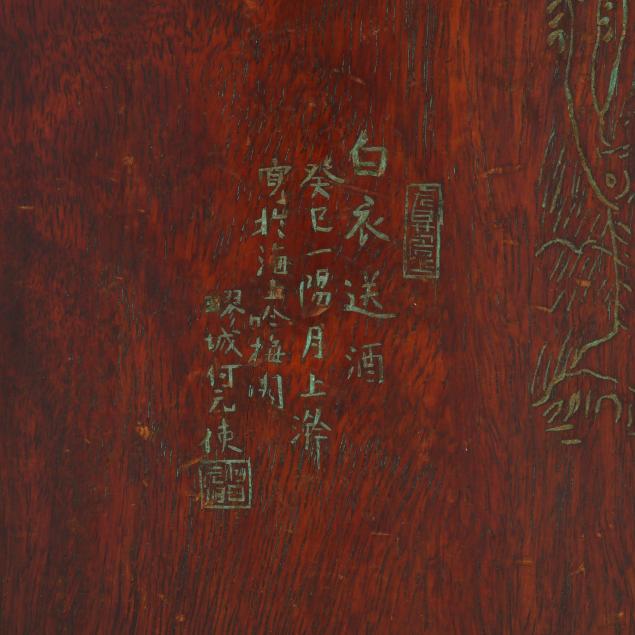 白衣送酒
癸巳一陽月上澣
寫於海上吟梅閣
疁城何元俊